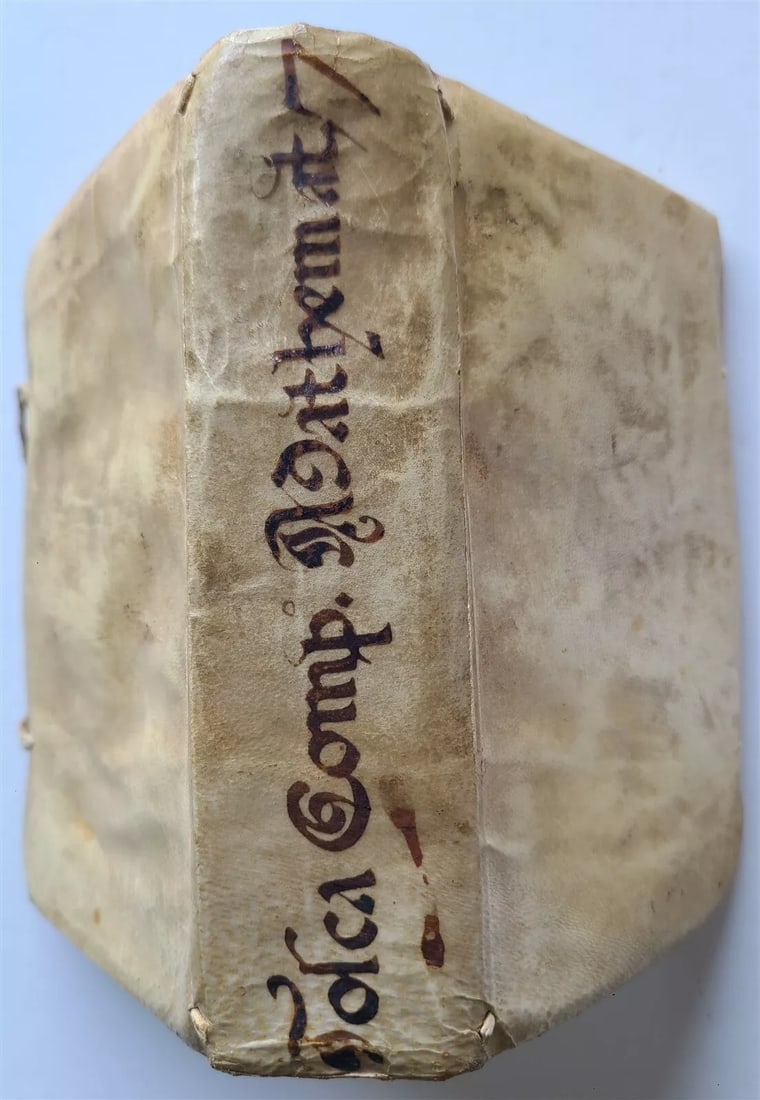 Tosca Comp. Mathemat. 7